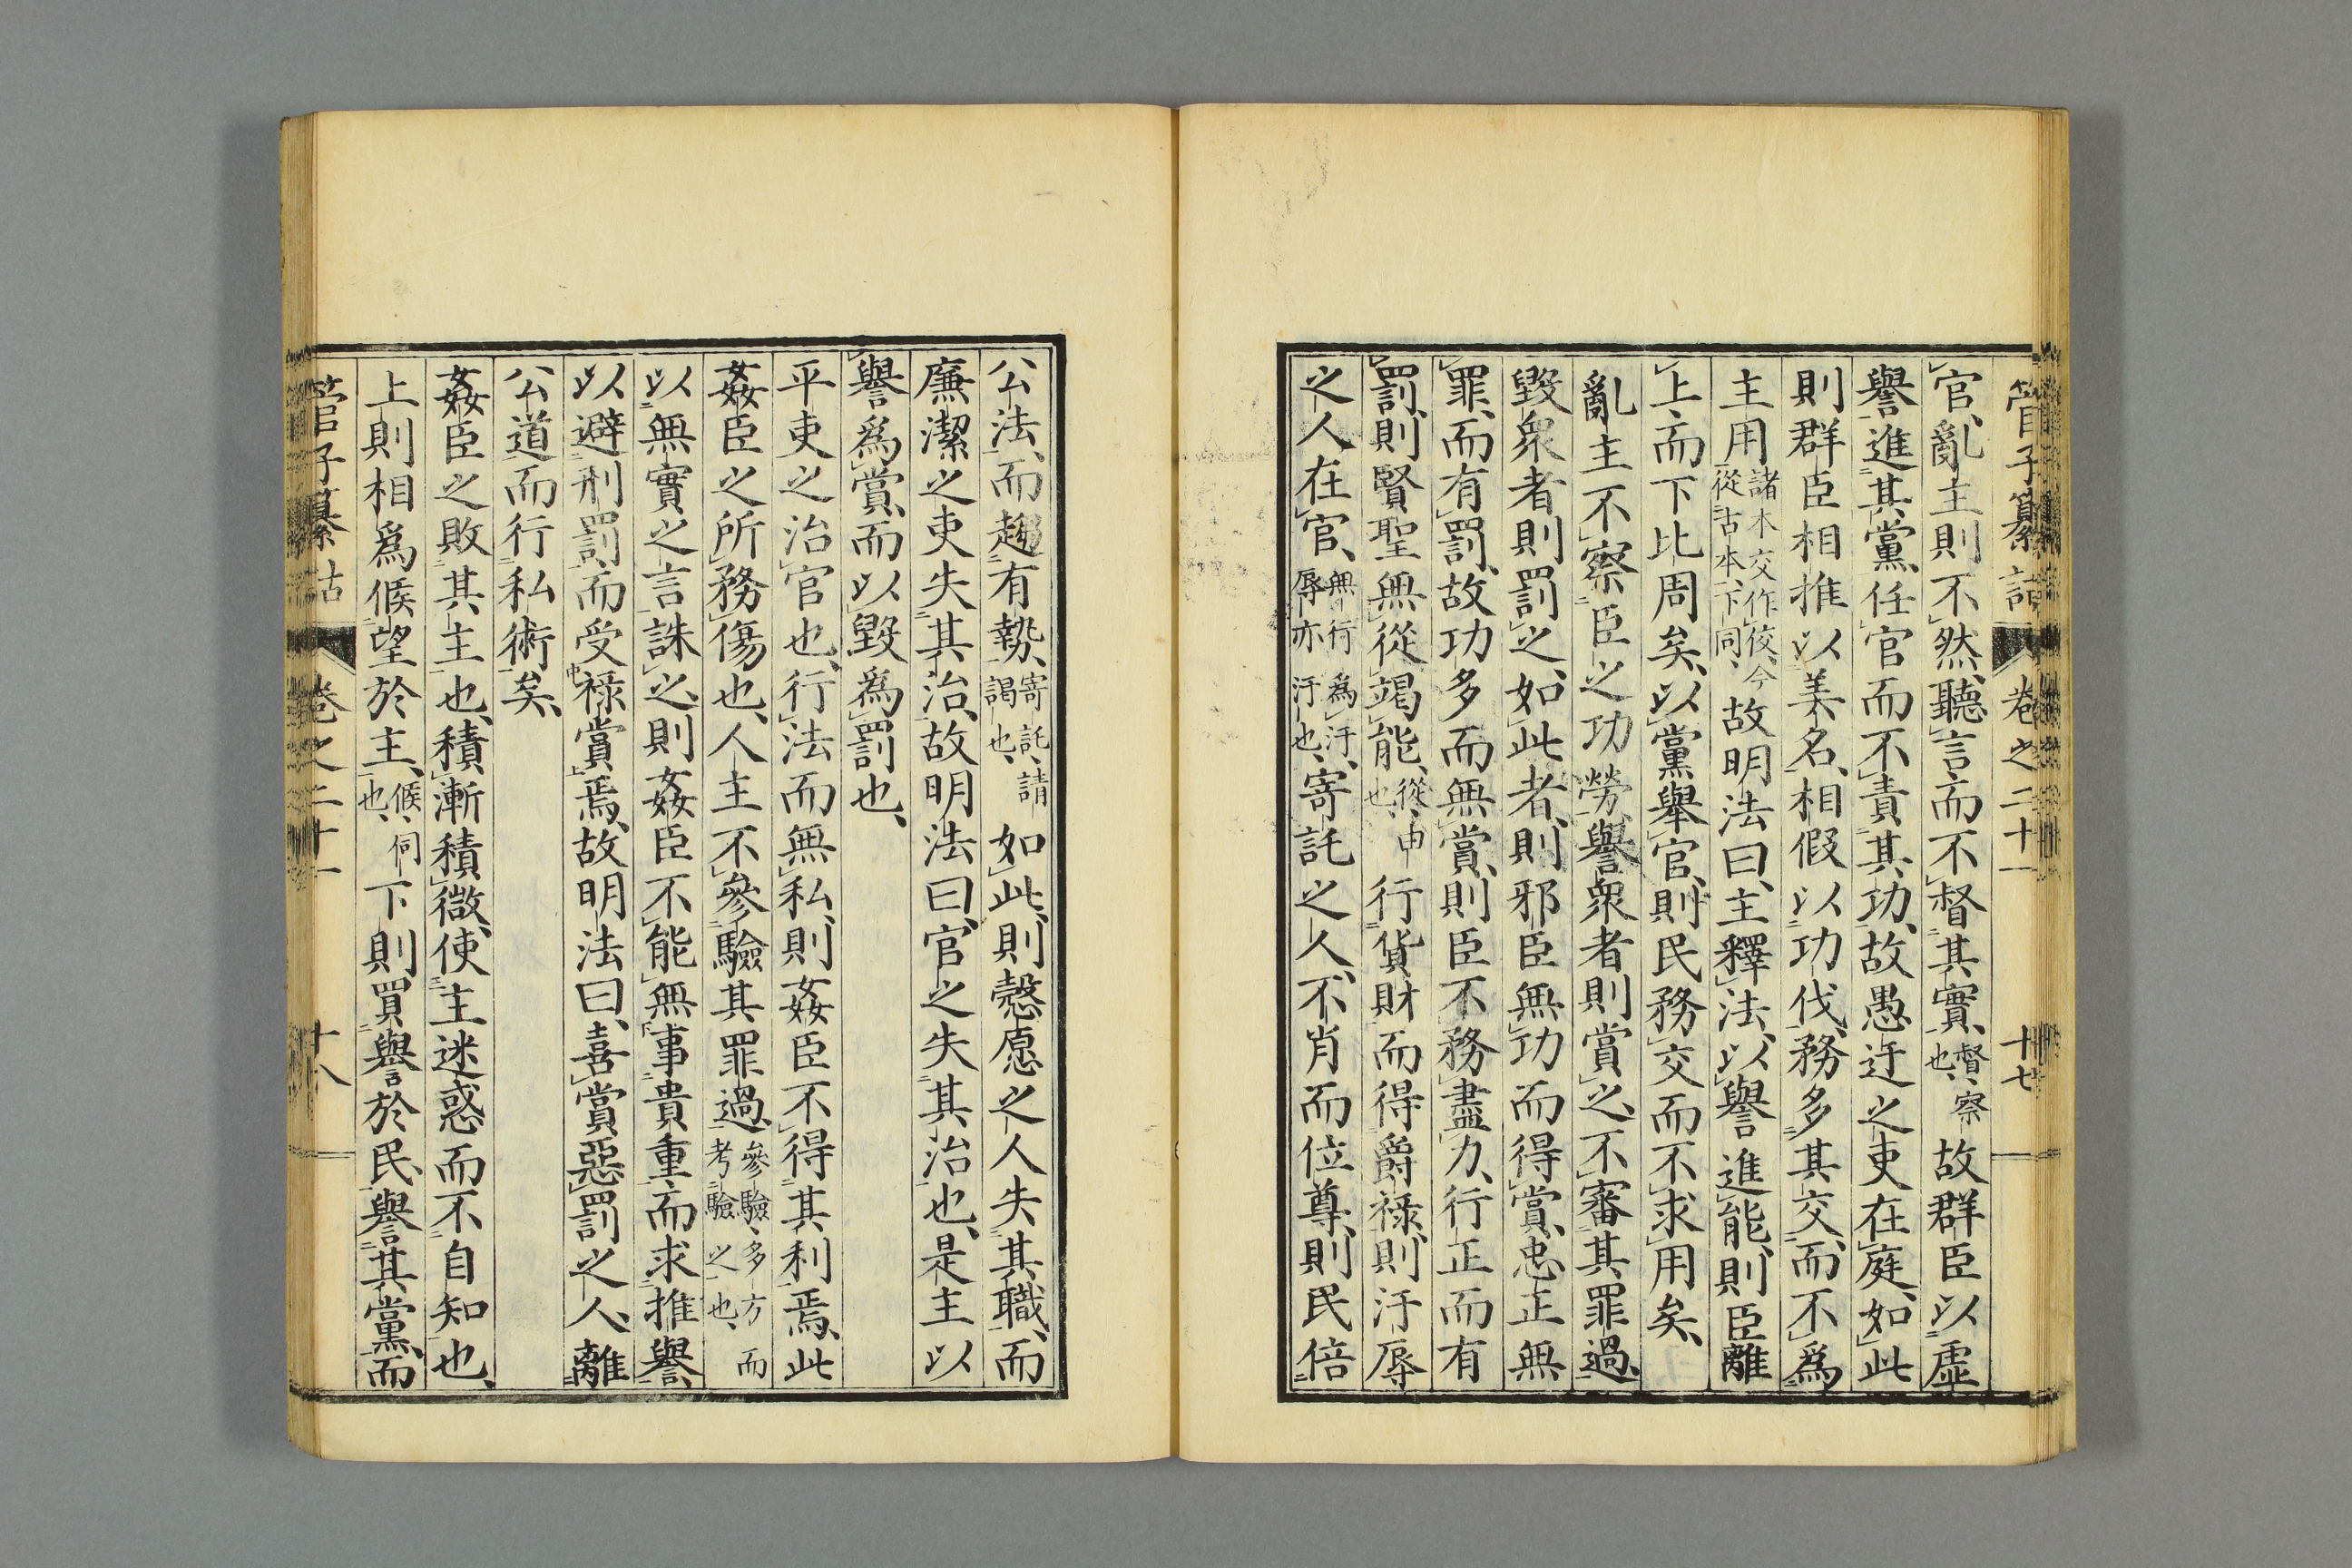 管子纂詁　卷之二十一　十七
官、亂主則不然、聽言而不督其實、督、察也、故群臣以虛
譽進其黨、任官而不責其功、故愚迂之吏在庭、如此
則群臣相推以美名、相假以功伐、務多其交、而不爲
主用諸本交作佼、今從古本、下同、故明法曰、主釋法、以譽進能、則臣離
上、而下比周矣、以黨舉官、則民務交而不求用矣、
亂主不察臣之功勞、譽衆者則賞之、不審其罪過、
毀衆者則罰之、如此者、則邪臣無功而得賞、忠正無
罪、而有罰、故功多而無賞、則臣不務盡力、行正而有
罰、則賢聖無從竭能、從、由也、行貨財而得爵祿、則汙辱
之人在官、無行爲汙、辱亦汙也、寄託之人、不肖而位尊、則民倍
公法、而趨有勢、寄託、請謁也、如此、則愨愿之人失其職、而
廉潔之吏失其治、故明法曰、官之失其治也、是主以
譽爲賞、而以毀爲罰也、
平吏之治官也、行法而無私、則姦臣不得其利焉、此
姦臣之所務傷也、人主不參驗其罪過、參驗、多方而考驗之也、
以無實之言誅之、則姦臣不能無事貴重而求推譽、
以避刑罰、而受祿賞焉、故明法曰、喜賞惡罰之人、離
公道而行私術矣、
姦臣之敗其主也、積漸積微、使主迷惑而不自知也、
上則相爲候望於主、候、伺也、下則買譽於民、譽其黨、而
管子纂詁　卷之二十一　十八